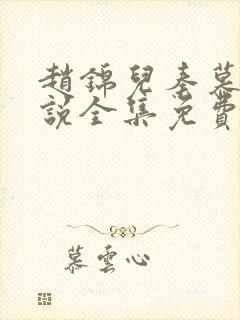 趙錦兒秦慕
說全集免費
慕雲心